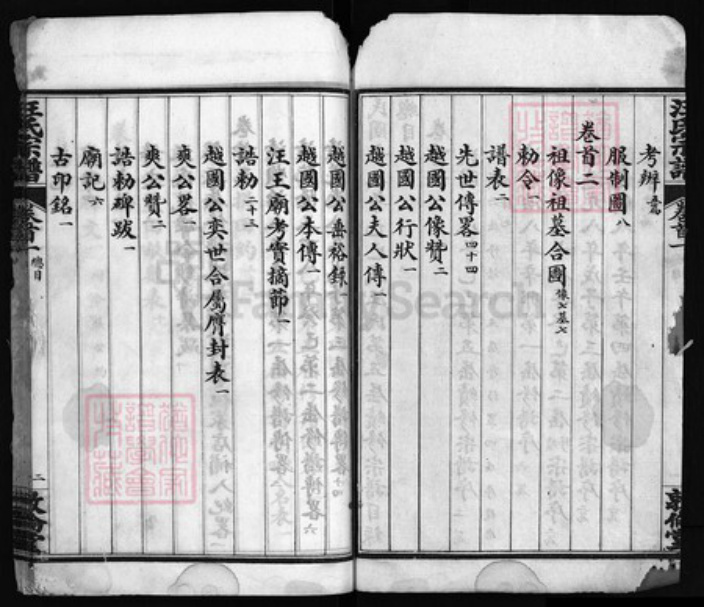 汪氏宗譜 卷首一
考辨 五篇
服制圖 八
卷首二
祖像祖墓合圖 像七墓七
勅令 一
譜表 二
先世傳畧 四十四
越國公像贊 二
越國公行狀 一
越國公夫人傳 一
越國公垂裕錄 一
越國公本傳 一
汪王廟考實摘節 一
誥勅 二十三
越國公奕世合屬膺封表 一
奭公畧 一
奭公贊 二
誥勅碑跋 一
廟記 六
古印銘 一
汪氏宗譜 卷首一 總目 二 敦倫堂
FamilySearch